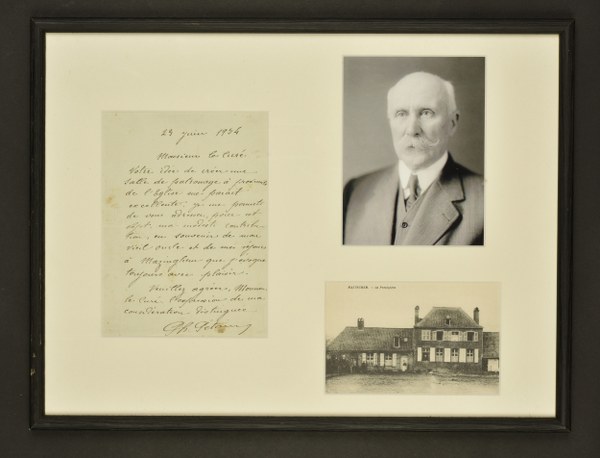 23 juin 1934
Monsieur le Curé
Votre idée de créer une
salle de patronage à proximité
de l'Eglise me parait
excellente; je me permets
de vous adresser, pour cet
objet, ma modeste contribu-
tion, en souvenir de mon
vieil oncle et de mes séjours
à Mazinghem que j'évoque
toujours avec plaisir.
Veuillez agréer, Monsieur
le Curé, l'expression de ma
considération distinguée.
Ph. Pétain
MAZINGHEM - Le Presbytère